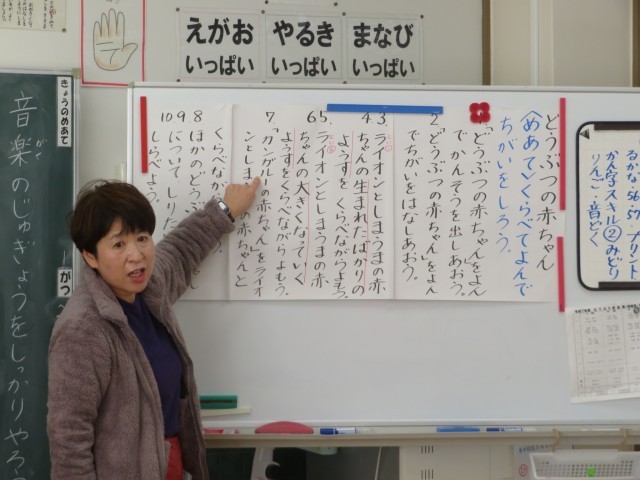 えがお
いっぱい
やるき
いっぱい
まなび
いっぱい
どうぶつの赤ちゃん
〈めあて〉くらべてよんで
ちがいをしろう。
「どうぶつの赤ちゃん」をよん
でかんそうを出しあおう。
2.「どうぶつの赤ちゃん」をよん
でちがいをはなしあおう。
3.ライオンとしまうまの赤
4.ちゃんの生まれたばかりの
ようすをくらべながらよもう。
5.ライオンとしまうまの赤
6.ちゃんの大きくなっていく
ようすをくらべながらよもう。
7「カンガルーの赤ちゃん」をライオ
ンとしま
の赤ちゃんと
くらべなが
8ほかのどうぶ
9について しりた
10しらべよう。
きょうのめあて
音楽のじゅぎょうをしっかりやろ
がつ
56.57 プリント
かん字スキル②みどり
りんご・音どく